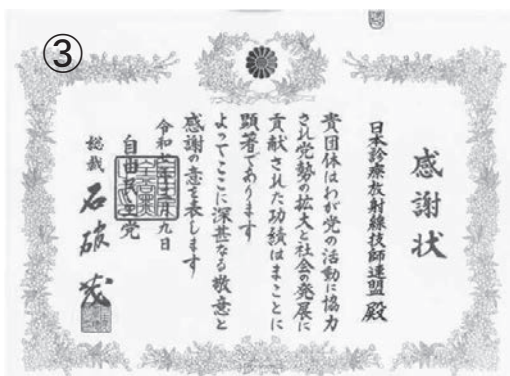 ③
感謝状
日本診療放射線技師連盟 殿
貴団体はわが党の活動に協力
され党勢の拡大と社会の発展に
貢献された功績はまことに
顕著であります
よってここに深甚なる敬意と
感謝の意を表します
令和七年三月九日
自由民主党
総裁 石破茂